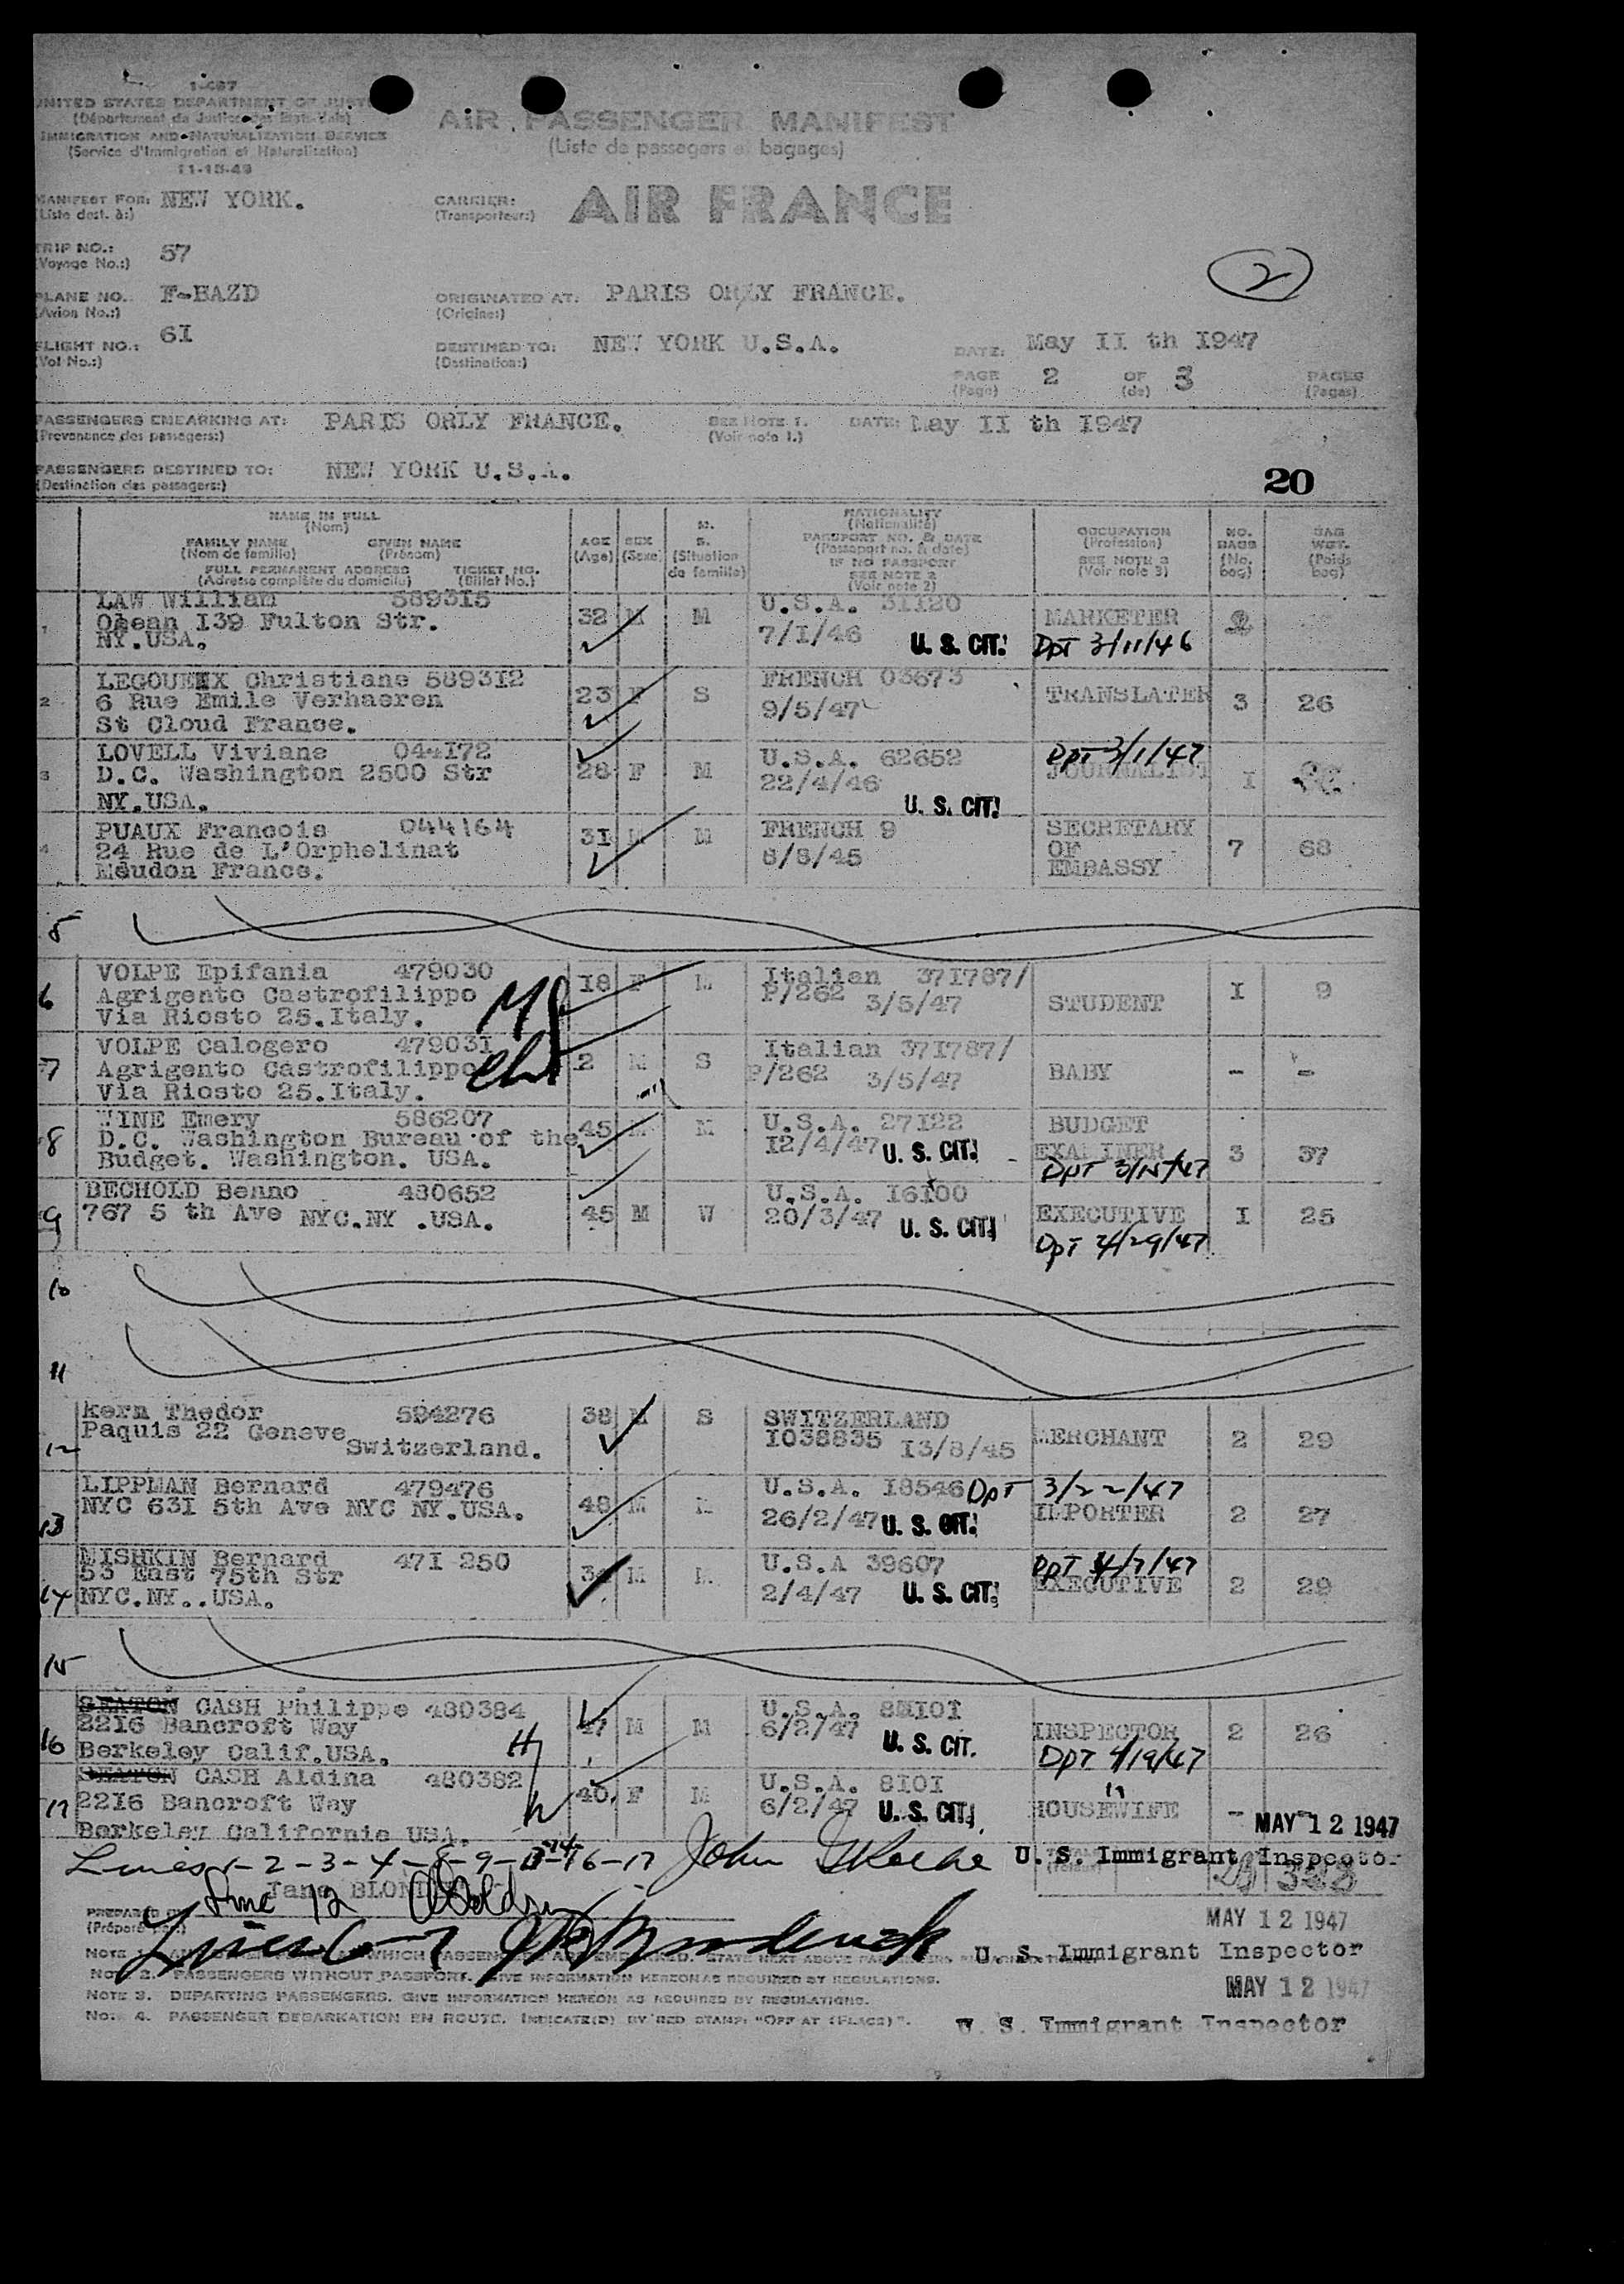 1-467
UNITED STATES DEPARTMENT OF
(Département de Justice des Etats-Unis)
IMMIGRATION AND NATURALIZATION SERVICE
(Service d'Immigration et Naturalisation)
11-15-43
AIR PASSENGER MANIFEST
(Liste de passagers et bagages)
MANIFEST FOR: NEW YORK.
(Liste dest. à:)
CARRIER: AIR FRANCE
(Transporteur:)
TRIP NO.: 57
(Voyage No.:)
2
PLANE NO. F-BAZD
(Avion No.:)
ORIGINATED AT: PARIS ORLY FRANCE.
(Origine:)
FLIGHT NO.: 6I
(Vol No.:)
DESTINED TO: NEW YORK U.S.A.
(Destination:)
DATE: May II th I947
PAGE 2 OF 3 PAGES
(Page) (de) (Pages)
PASSENGERS EMBARKING AT: PARIS ORLY FRANCE. SEE NOTE 1. DATE: May II th I947
(Provenance des passagers:) (Voir note 1.)
PASSENGERS DESTINED TO: NEW YORK U.S.A.
(Destination des passagers:)
20
NAME IN FULL
(Nom)
FAMILY NAME GIVEN NAME
(Nom de famille) (Prénom)
FULL PERMANENT ADDRESS TICKET NO.
(Adresse complète du domicile) (Billet No.)
AGE
(Age)
SEX
(Sexe)
M.
S.
(Situation
de famille)
NATIONALITY
(Nationalité)
PASSPORT NO. & DATE
(Passeport no. & date)
IF NO PASSPORT
SEE NOTE 2
(Voir note 2)
OCCUPATION
(Profession)
SEE NOTE 3
(Voir note 3)
NO.
BAGS
(No.
bag)
BAG
WGT.
(Poids
bag)
1 LAW William 589315 32 M M U.S.A. 31120 MARKETER
Ohean I39 Fulton Str. 7/I/46 U. S. CIT. Dpt 3/11/46
NY.USA.
2 LEGOUEIX Christiane 589312 23 F S FRENCH 03673 TRANSLATER 3 26
6 Rue Emile Verhaeren 9/5/47
St Cloud France.
3 LOVELL Viviane 044172 28 F M U.S.A. 62652 Dpt 3/1/47
D.C. Washington 2500 Str 22/4/46 JOURNALIST I
NY.USA. U. S. CIT.
4 PUAUX Francois 044164 3I M M FRENCH 9 SECRETARY 7 68
24 Rue de L'Orphelinat 8/8/45 OF
Meudon France. EMBASSY
5
6 VOLPE Epifania 479030 I8 F M Italian 37I787/ STUDENT I 9
Agrigento Castrofilippo P/262 3/5/47
Via Riosto 25.Italy.
7 VOLPE Calogero 479031 2 M S Italian 37I787/ BABY - -
Agrigento Castrofilippo P/262 3/5/47
Via Riosto 25.Italy.
8 WINE Emery 586207 45 M M U.S.A. 27I22 BUDGET 3 37
D.C. Washington Bureau of the I2/4/47 U. S. CIT. EXAMINER
Budget. Washington. USA. Dpt 3/15/47
9 BECHOLD Benno 480652 45 M W U.S.A. I6I00 EXECUTIVE I 25
767 5 th Ave NYC.NY .USA. 20/3/47 U. S. CIT. Dpt 4/29/47
10
11
12 Kern Thedor 594276 38 M S SWITZERLAND MERCHANT 2 29
Paquis 22 Geneve I038835 I3/8/45
Switzerland.
13 LIPPMAN Bernard 479476 48 M M U.S.A. I8546 Dpt 3/22/47
NYC 63I 5th Ave NYC NY.USA. 26/2/47 U. S. CIT. IMPORTER 2 27
14 MISHKIN Bernard 47I 250 34 M M U.S.A 39607 Dpt 4/7/47
53 East 75th Str 2/4/47 U. S. CIT. EXECUTIVE 2 29
NYC.NY..USA.
15
16 SEATON CASH Philippe 480384 47 M M U.S.A. INSPECTOR 2 26
2216 Bancroft Way 6/2/47 U. S. CIT. Dpt 4/19/47
Berkeley Calif.USA.
17 SEATON CASH Aldina 480382 40 F M U.S.A. 8I0I "
2216 Bancroft Way 6/2/47 U. S. CIT. HOUSEWIFE -
Berkeley California USA. MAY 12 1947
Lines 1-2-3-4-8-9-13-14-16-17 U. S. Immigrant Inspector
Line 12
PREPARED BY
(Préparé par)
MAY 12 1947
U. S. Immigrant Inspector
NOTE 2. PASSENGERS WITHOUT PASSPORT. GIVE INFORMATION HEREON AS REQUIRED BY REGULATIONS.
MAY 12 1947
NOTE 3. DEPARTING PASSENGERS. GIVE INFORMATION HEREON AS REQUIRED BY REGULATIONS.
NOTE 4. PASSENGER DEBARKATION EN ROUTE. INDICATE(D) BY RED STAMP: "OFF AT (PLACE)".
U. S. Immigrant Inspector